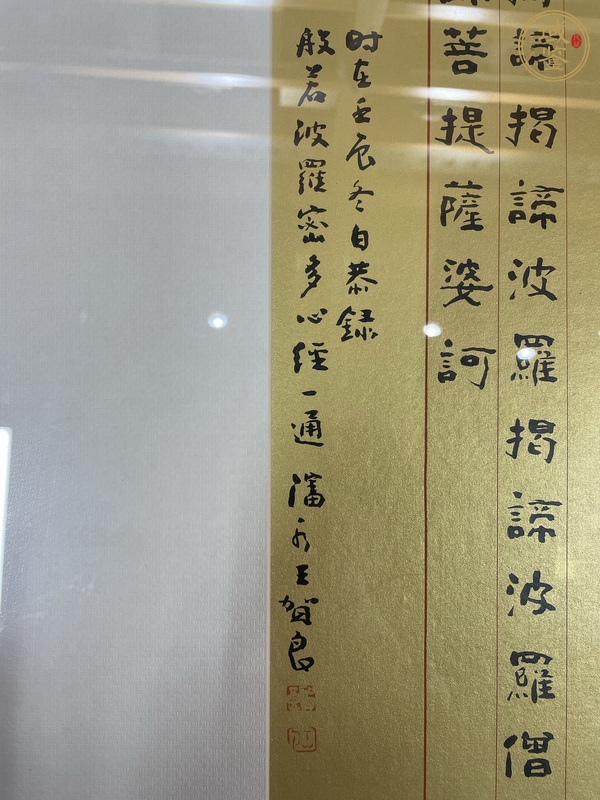 諦揭諦波羅揭諦波羅僧
菩提薩婆訶
时在壬辰冬日恭録
般若波羅密多心經一通 瀋水王賀良